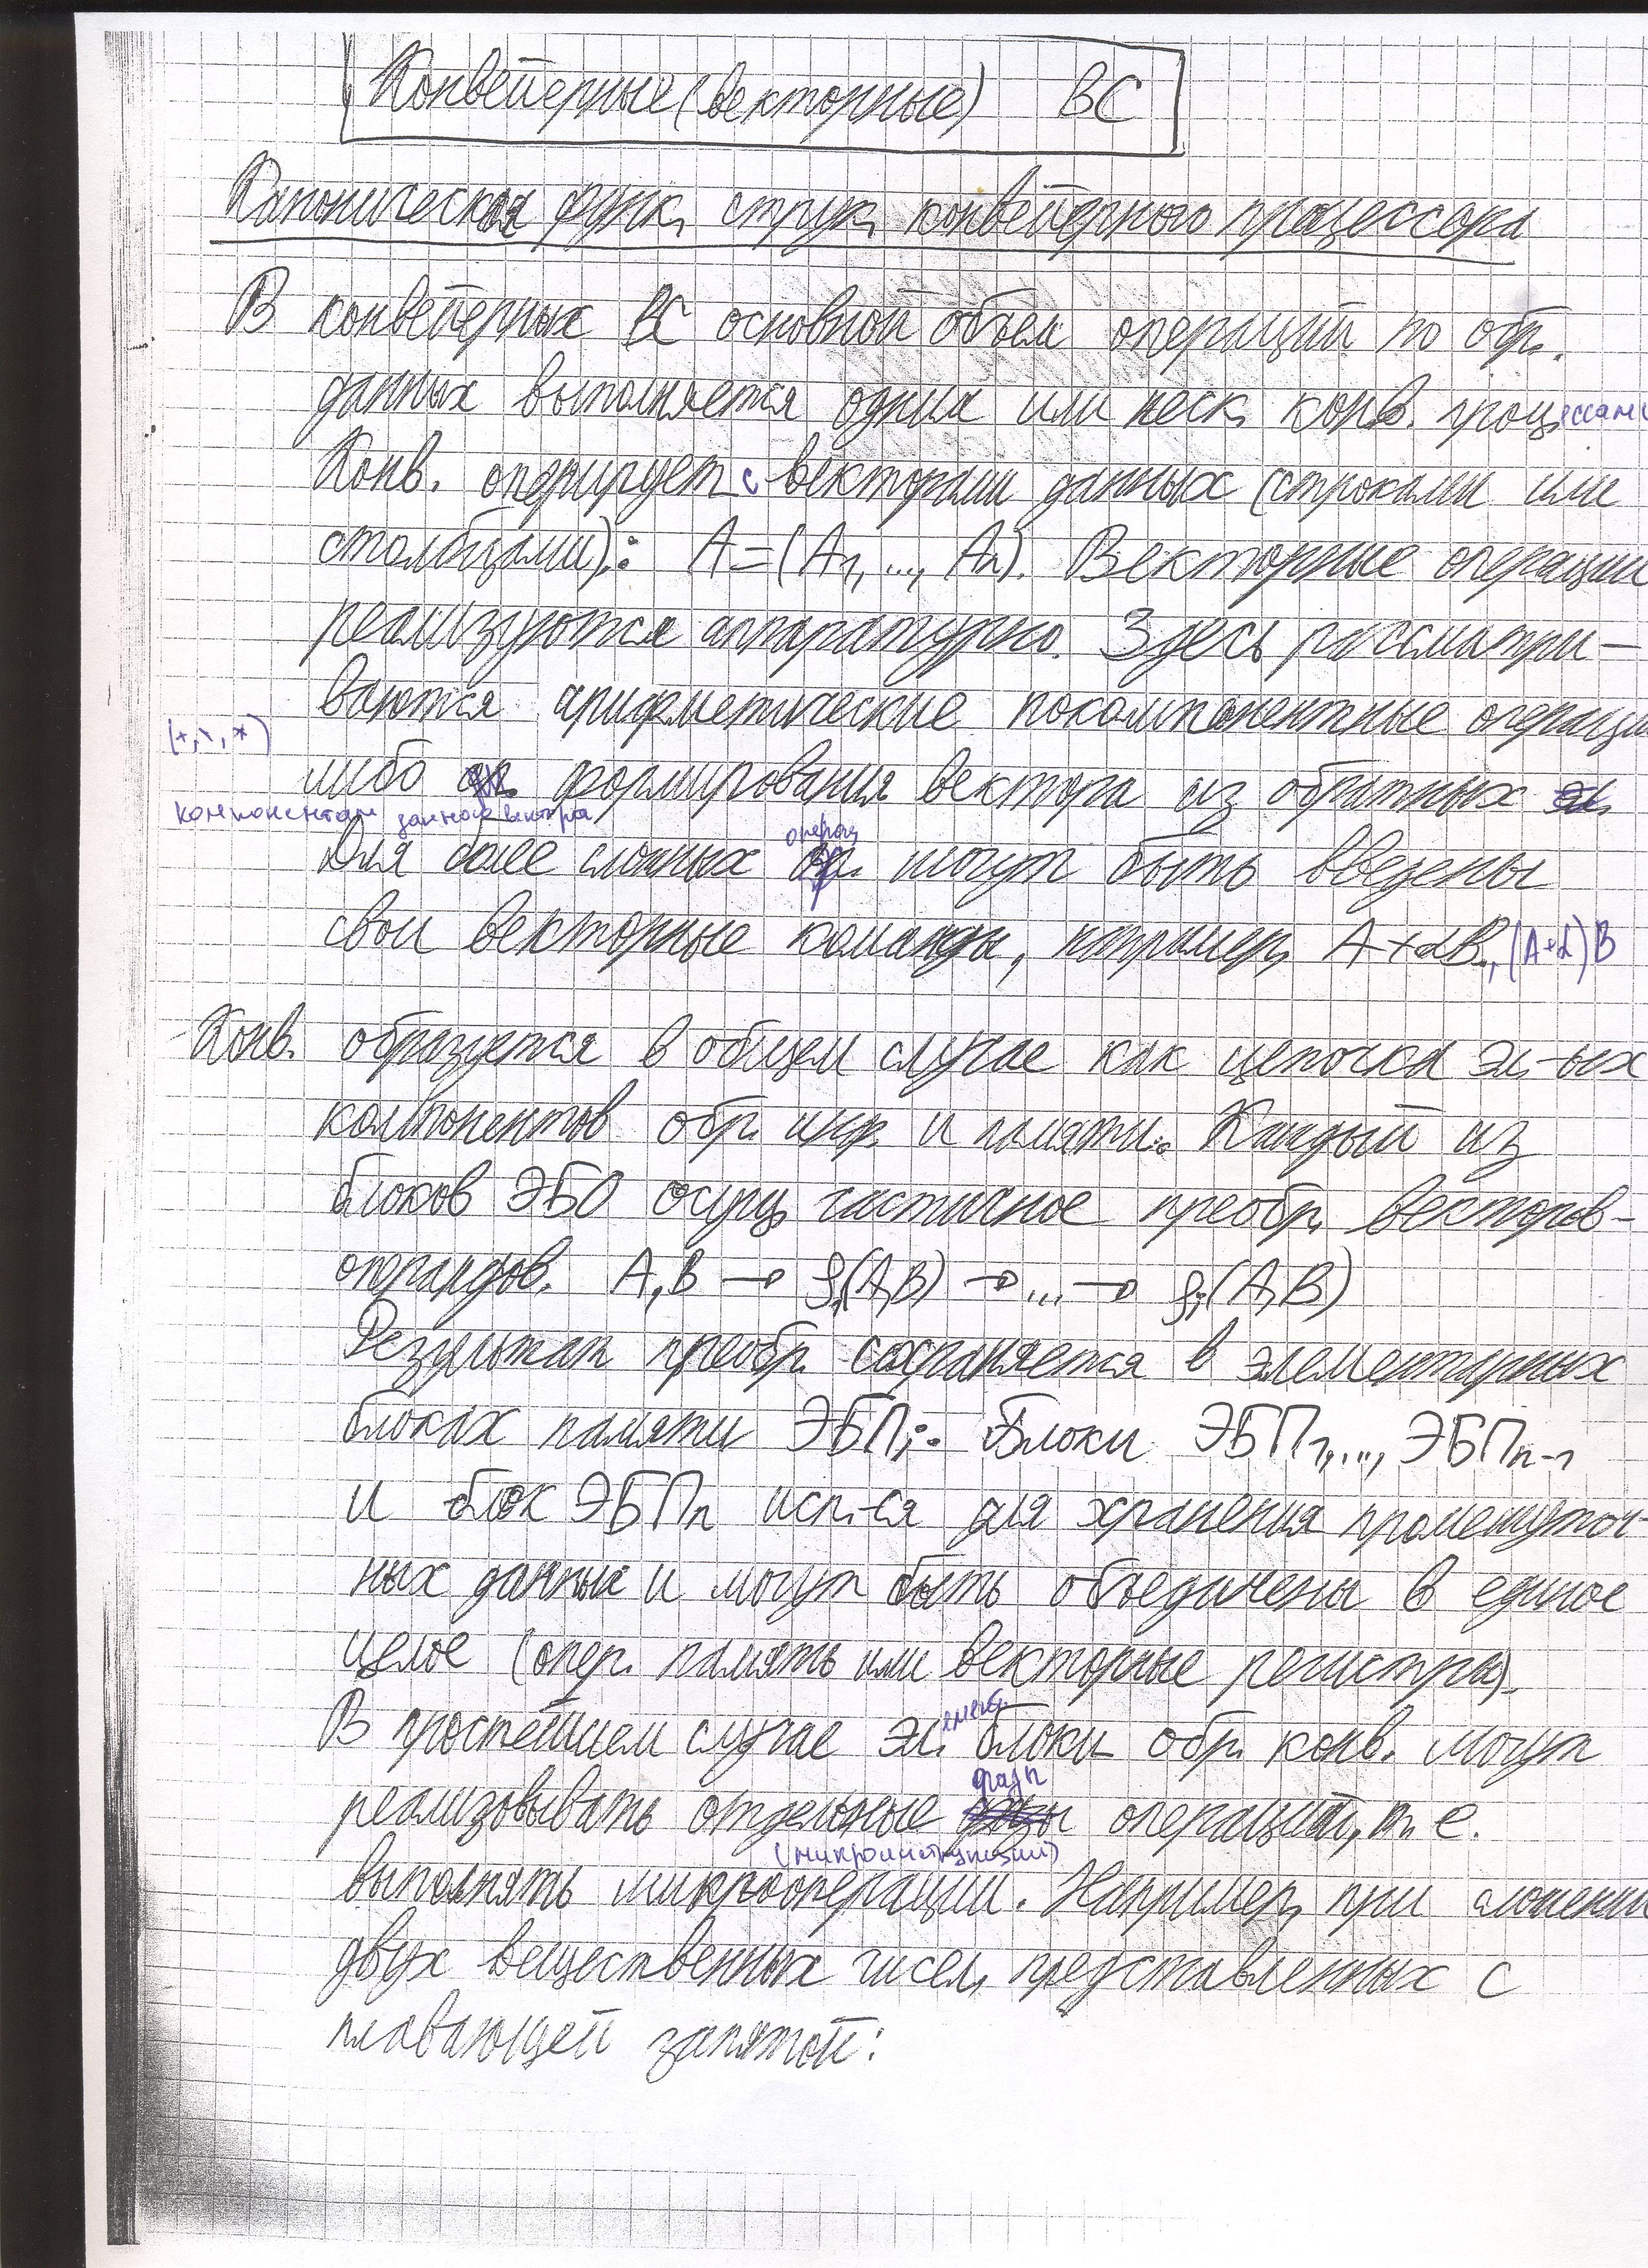 Конвейерные (векторные) ВС
Каноническая функ. струк. конвейерного процессора
В конвейерных ВС основной объем операций по обр.
данных выполняется одним или неск. конв. процессами
Конв. оперирует с векторами данных (строками или
столбцами): A=(A1, ..., An). Векторные операции
реализуются аппаратурно. Здесь рассматри-
ваются арифметические покомпонентные операции
(+, \, *)
либо формирования вектора из обратных
компонентам данного вектора
Для более сложных операц могут быть введены
свои векторные команды, например, A+αB, (A+α)B
Конв. образуется в общем случае как цепочка эл-ых
компонентов обр. инф. и памяти. Каждый из
блоков ЭБО осущ. частичное преобр. векторов-
операндов. A, B → f1(A,B) → ... → fi(A,B)
Результат преобр. сохраняется в элементарных
блоках памяти ЭБПi. Блоки ЭБП1, ..., ЭБПn-1
и блок ЭБПn исп-ся для хранения промежуточ-
ных данных и могут быть объединены в единое
целое (опер. память или векторные регистры).
В простейшем случае элемент. блоки обр. конв. могут
реализовывать отдельные фазы операций, т. е.
(микроинструкции)
выполнять микрооперации. Например, при сложении
двух вещественных чисел, представленных с
плавающей запятой: